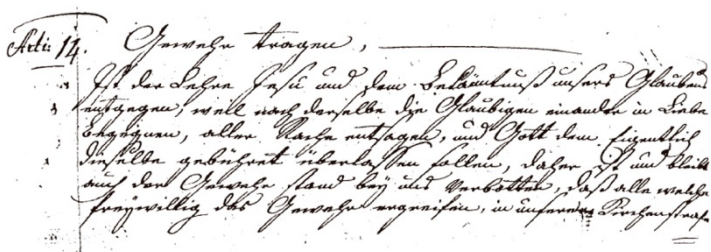 Artic: 14. Gewehr tragen,
Ist der Lehre Jesu und dem Bekäntnuß unsers Glaubens
entgegen, weil nach derselbe die Glaubigen einander in Liebe
begegnen, aller Rache entsagen, und Gott dem Eigentlich
dieselbe gebühret überlassen sollen, daher ist und bleibt
auch der Gewehr stand bey uns Verbotten, daß alle welche
freywillig das Gewehr ergreifen, in unserer Kirchenstrafe